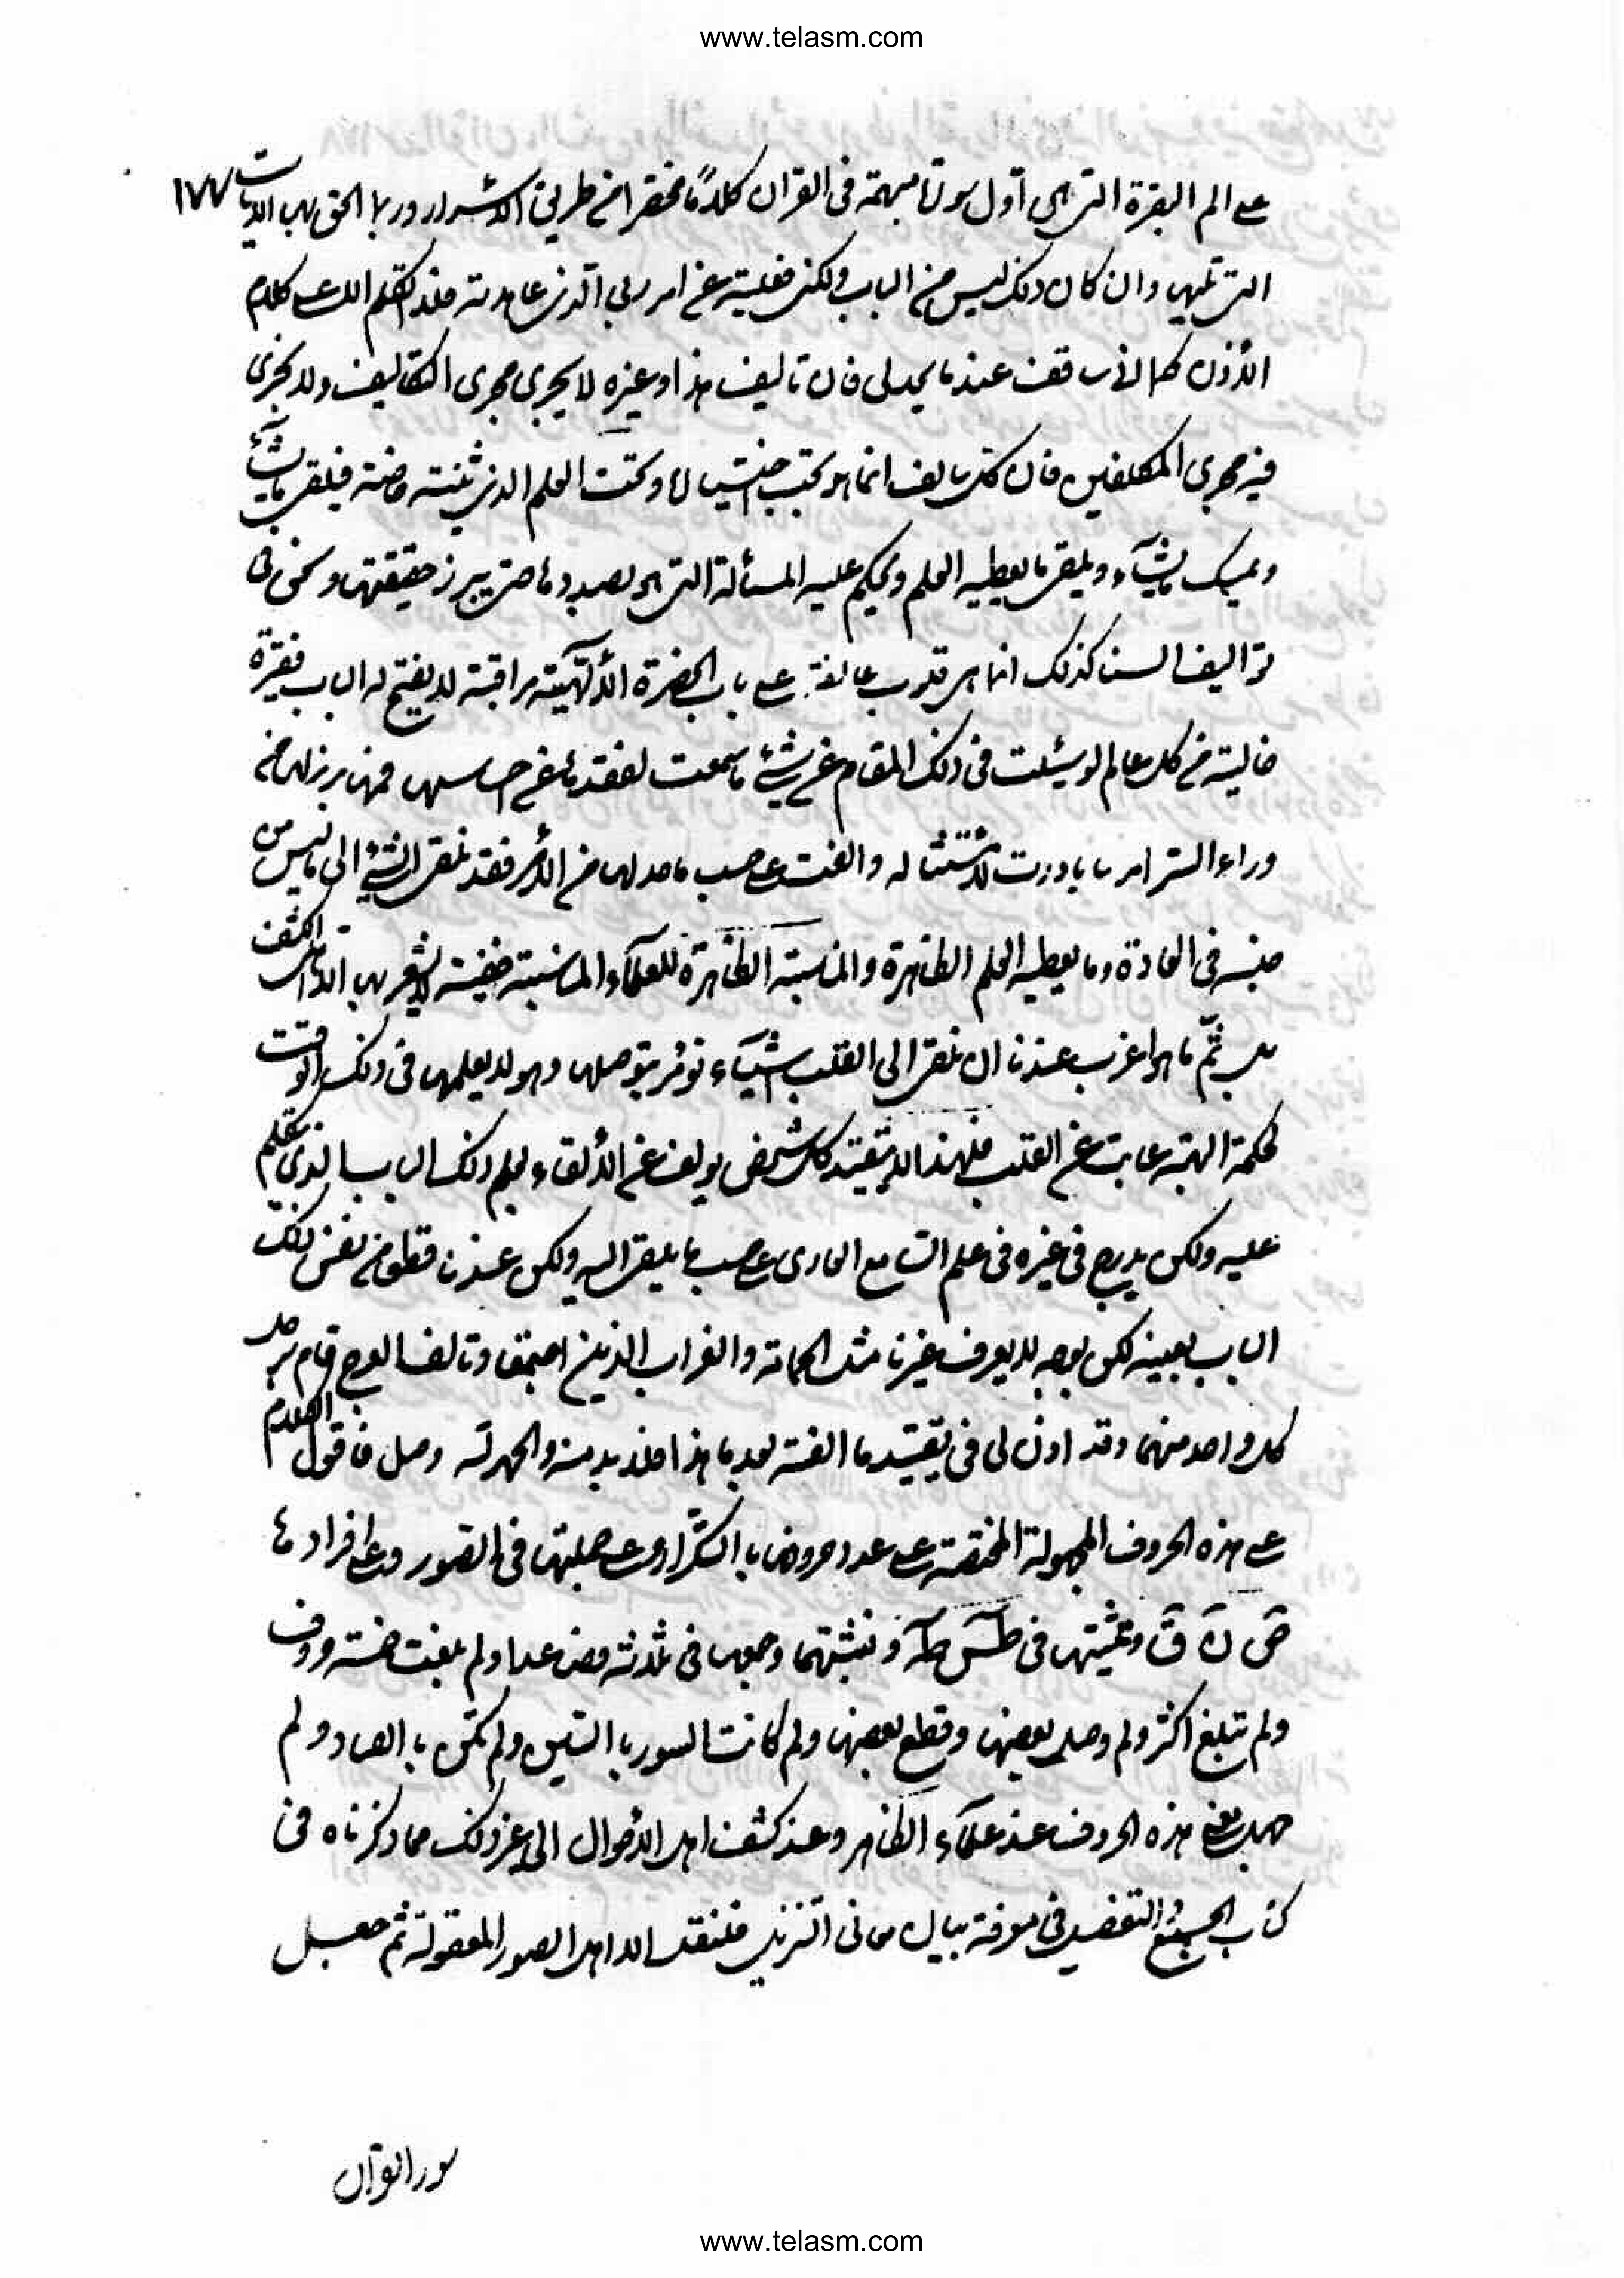 www.telasm.com
على الم البقرة التي هي اول سورة مبهمة في القران كلاما مختصرا من طريق الاسرار وربما الحق بها الايات ١٧٧
التي تليها وان كان ذلك ليس من الباب ولكن فعلته عن امر ربي الذي عاهدته فلا اتكلم الا على كلام
الاذن كما اني ساقف عند ما يحد لي فان تاليف هذا وغيره لا يجري مجرى التكاليف ولا نجري
فيه مجرى المكلفين فان كل مالف انما هو تحت اختياره وتحت العلم الذي يثبته خاصة فيلقي ما يشآء
ويمسك ما يشآء ويلقي ما يعطيه العلم ويحكم عليه المسئلة التي هو بصددها حتى يبرز حقيقتها ونحن في
تواليفنا لسنا كذلك انما هي قلوب عاكفة على باب الحضرة الالهية مراقبة لا يفتح له الباب فقيرة
خالية من كل عالم لو سئلت في ذلك المقام عن شيء ما سمعت لفقدها عن احساسها فمهما برز لها من
وراء الستر امر ما بادرت لامتثاله والفت على حسب ما حد لها من الامر فقد يلقى الشيء الى ما ليس من
جنسه في العادة وما يعطيه العلم الظاهرة والمناسبة الظاهرة للعلمآء والمناسبة خفية لا يشعر بها الا اهل الكشف
بل ثم ما هو اغرب عندنا ان يلقى الى القلب اشيآء تؤمر بتوصلها وهو لا يعلمها في ذلك الوقت
لحكمة الهية غابت عن القلب فلهذا لا يتقيد كل شخص يولف عن الالقاء بعلم ذلك الباب الذي تكلم
عليه ولكن يدرج في غيره في علم السامع العادى على حسب ما يلقى اليه ولكن عندنا قطعا من نفس ذلك
الباب بعينه لكن بوجه لا يعرف غيرنا مثل الحمامة والغراب الذين اجتمعا وتالفا لعرج قام برجل
كل واحد منهما وقد اذن لي في تقييد ما القيه بعد هذا فلا بد منه والحمد لله وصل فاقول الكلام
على هذه الحروف المجهولة المختصة على عدد حروفها بالتكرار وعلى جملتها في الصور وعلى افرادها
في ص ن ق وتثنيتها في طس طه و تثليثها وجمعها في ثلاثة فصاعدا ولم بلغت خمسة حروف
ولم تبلغ اكثر ولم وصل بعضها وقطع بعضها ولم كانت السور بالسين ولم تكن بالصاد ولم
جهل معنى هذه الحروف عند علمآء الظاهر وعند كشف اهل الاحوال الى غير ذلك مما ذكرناه في
كتاب الجمع والتفصيل في معرفة بيان معاني التنزيل فلنقل اهل الصور المعقولة ثم جعل
سور القرآن
www.telasm.com